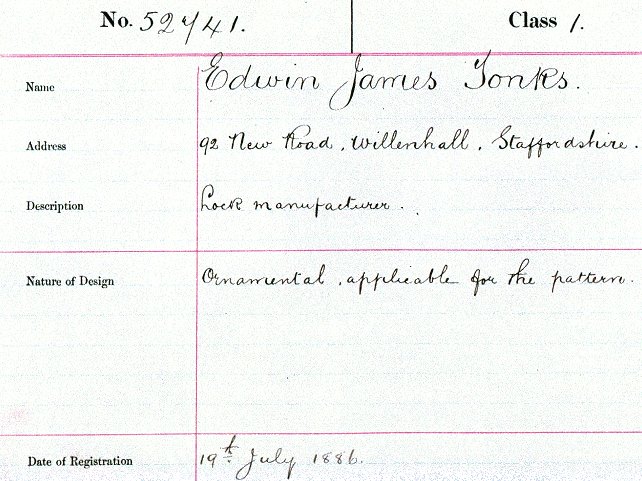 No. 52741. Class 1.
Name Edwin James Tonks.
Address 92 New Road, Willenhall, Staffordshire.
Description Lock manufacturer.
Nature of Design Ornamental, applicable for the pattern.
Date of Registration 19th July 1886.